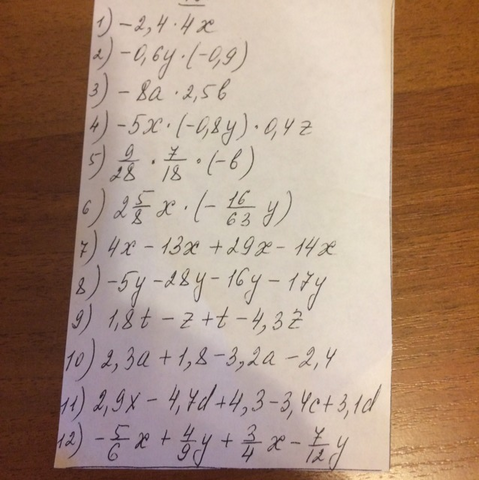 1) -2,4 · 4x
2) -0,6y · (-0,9)
3) -8a · 2,5b
4) -5x · (-0,8y) · 0,4z
5) 9/28 · 7/18 · (-b)
6) 2 5/8 x · (- 16/63 y)
7) 4x - 13x + 29x - 14x
8) -5y - 28y - 16y - 17y
9) 1,8t - z + t - 4,3z
10) 2,3a + 1,8 - 3,2a - 2,4
11) 2,9x - 4,7d + 4,3 - 3,4c + 3,1d
12) - 5/6 x + 4/9 y + 3/4 x - 7/12 y